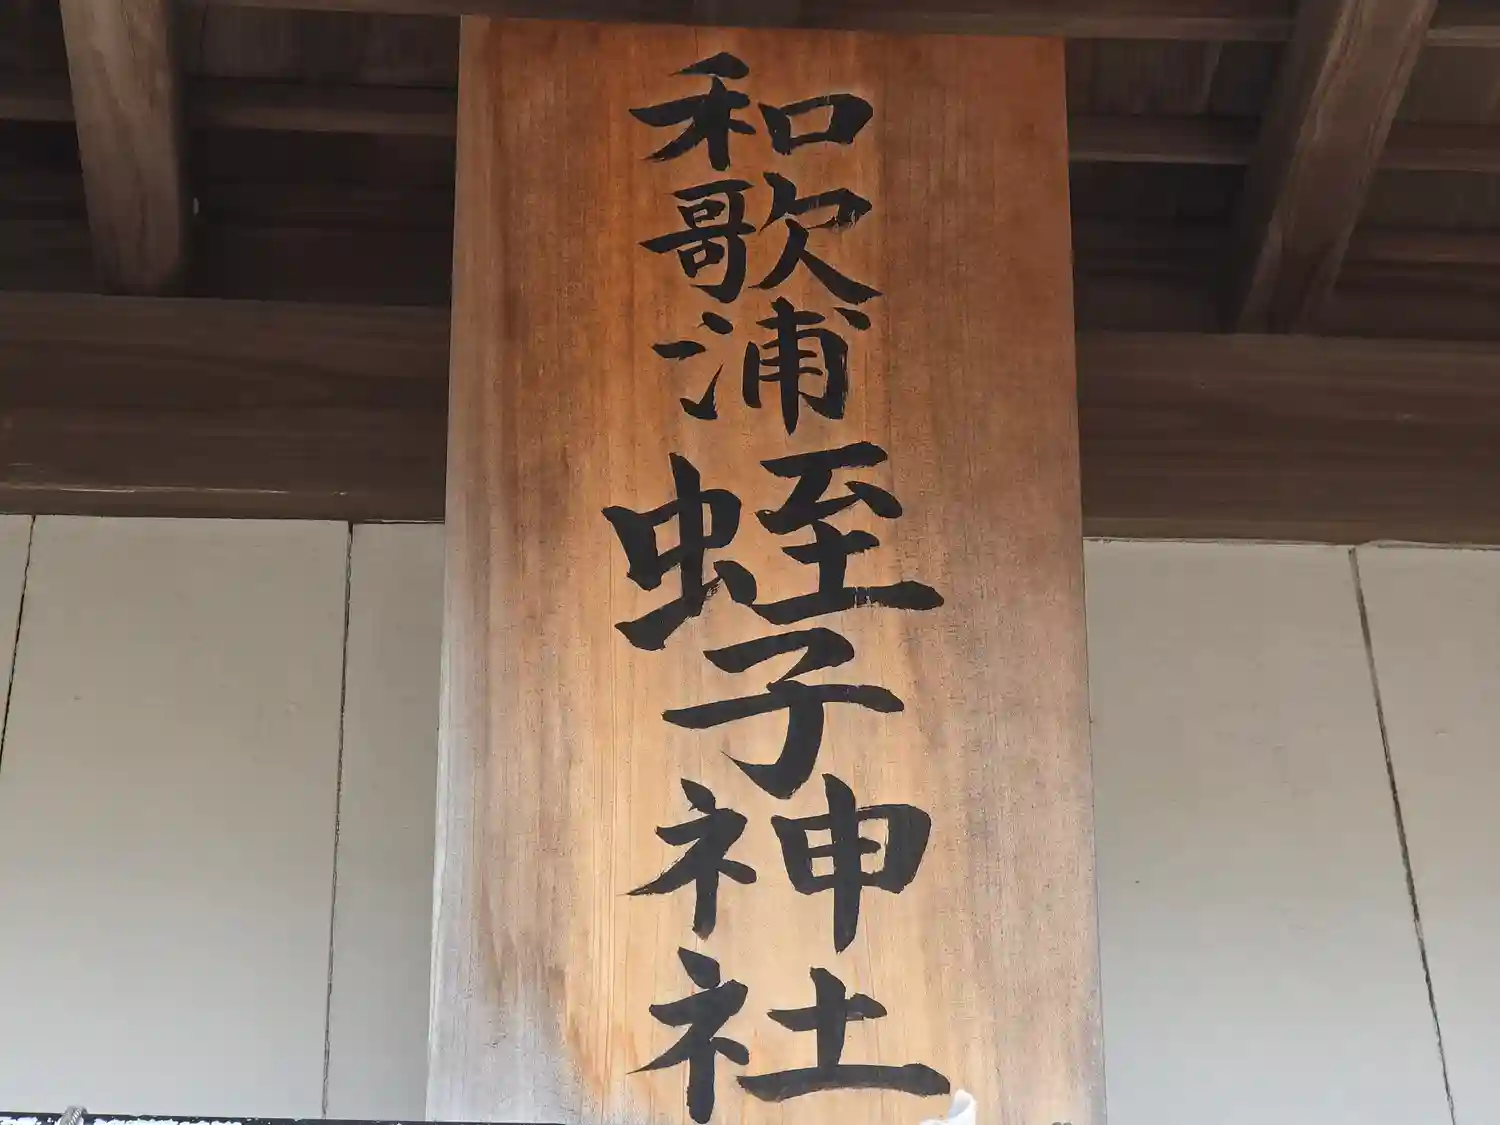 和歌浦蛭子神社